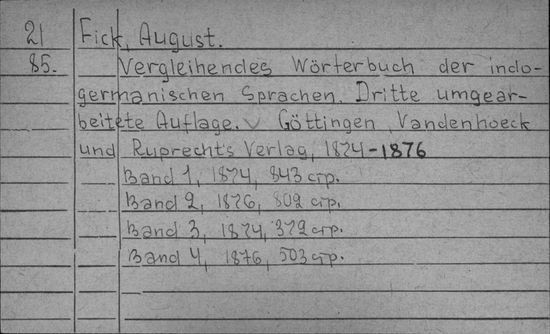 21 Fick, August.
85. Vergleihendes Wörterbuch der indo-
germanischen Sprachen. Dritte umgear-
beitete Auflage. Göttingen, Vandenhoeck
und Ruprecht's Verlag, 1874-1876
Band 1, 1874, 843 стр.
Band 2, 1876, 802 стр.
Band 3, 1874, 372 стр.
Band 4, 1876, 503 стр.